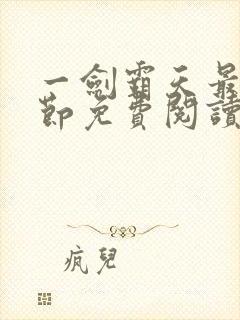 一劍霸天最
節免費閱讀
疯兒